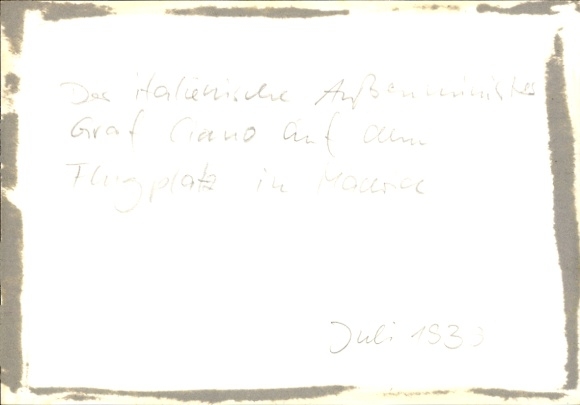 Der italienische Außenminister
Graf Ciano auf dem
Flugplatz in Madrid
Juli 1939